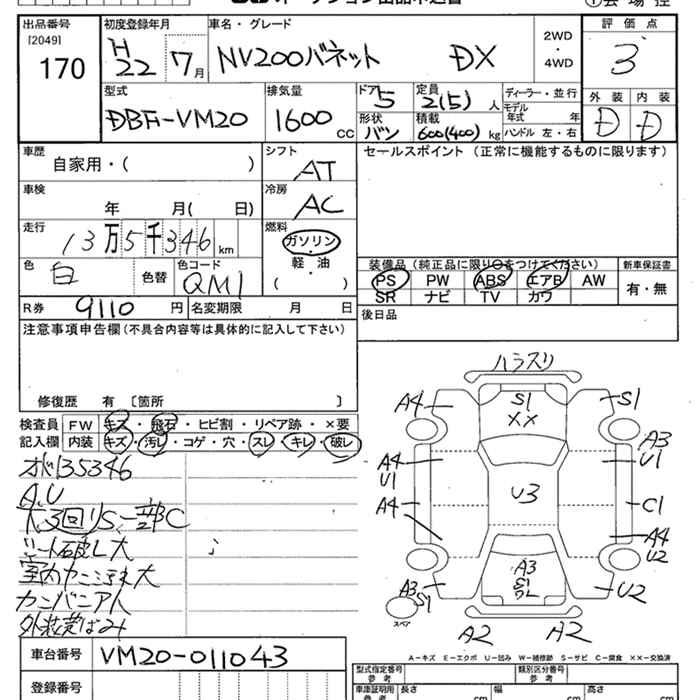 出品番号 初度登録年月 車名・グレード 評価点
[2049]
170 H22 7月 NV200バネット DX 2WD・4WD 3
型式 排気量 ドア 定員 ディーラー・並行 外装 内装
DBA-VM20 1600cc 5 2(5)人 モデル年式 年 D D
形状 積載 ハンドル 左・右
バン 600(400)kg
車歴 シフト セールスポイント(正常に機能するものに限ります)
自家用・( ) AT
車検 冷房
年 月( 日) AC
走行 燃料
13万5千346km ガソリン・軽・油・( )
色 色コード 装備品(純正品に限り○をつけてください) 新車保証書
白 色替 QM1 PS PW ABS エアB AW 有・無
SR ナビ TV カワ
R券 9110円 名変期限 月 日 後日品
注意事項申告欄(不具合内容等は具体的に記入して下さい)
修復歴 有 〔箇所 〕
検査員 FW キズ・飛石・ヒビ割・リペア跡・×要
記入欄 内装 キズ・汚レ・コゲ・穴・スレ・キレ・破レ
メ135346
A.U
大3回リS、一部C
シート破レ大
室内ヤニ汚レ大
外装荒ばみ
ハラスリ
A4 S1 S1
XX
A3
A4 U1
U1
U3
A4 C1
A4
U2
A3
S1
A3 S1
U2
スペア
A2 A2
A-キズ E-エクボ U-凹み W-補修跡 S-サビ C-腐食 XX-交換済
車台番号 VM20-011043
登録番号
型式指定番号 参考 類別区分番号 参考
車庫証明用 参考 長さ cm 幅 cm 高さ cm